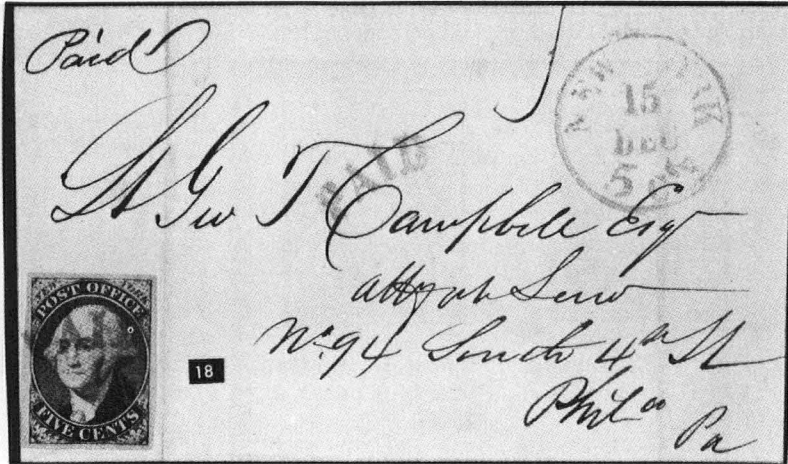 Paid
NEW YORK
15
DEC
5 cts
PAID
St Geo T Campbell Esqr
atty at Law
No. 94 South 4th St
Phila
Pa
POST OFFICE
PAID
FIVE CENTS
18